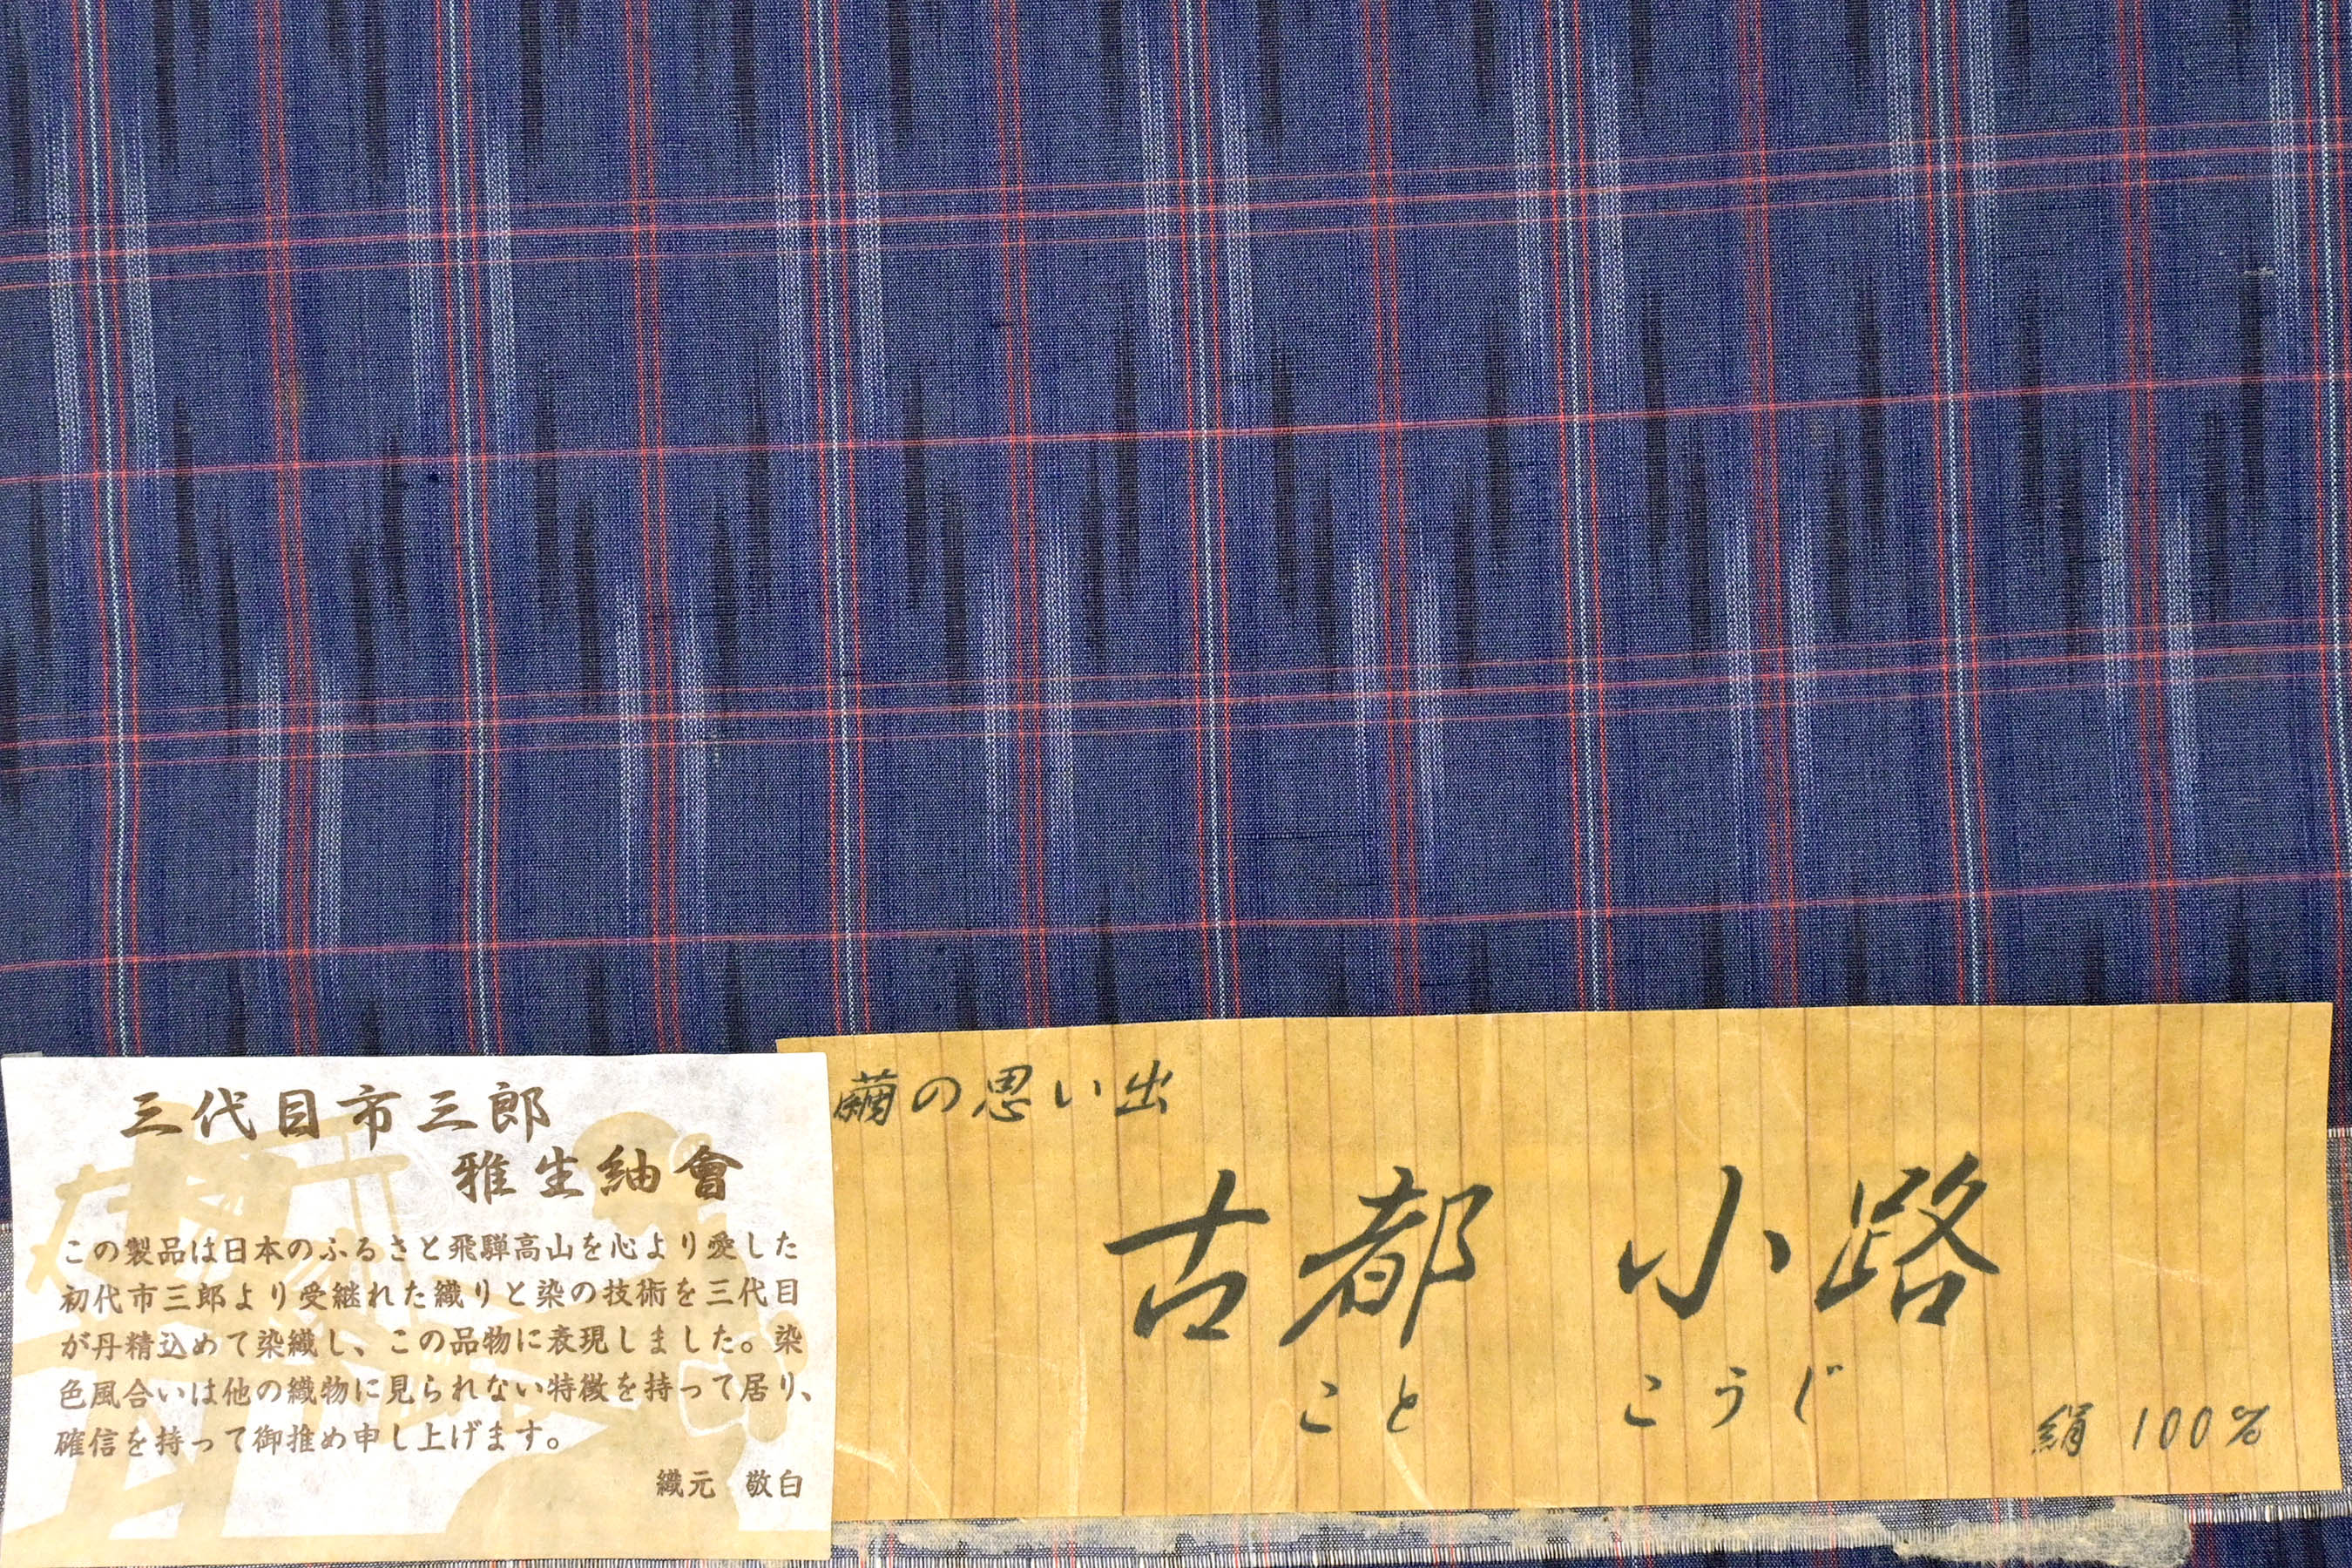 三代目市三郎
雅生紬會
この製品は日本のふるさと飛騨高山を心より愛した
初代市三郎より受継れた織りと染の技術を三代目
が丹精込めて染織し、この品物に表現しました。染
色風合いは他の織物に見られない特徴を持って居り、
確信を持って御推め申し上げます。
織元 敬白
繭の思い出
古都 小路
こと こうじ
絹 100%